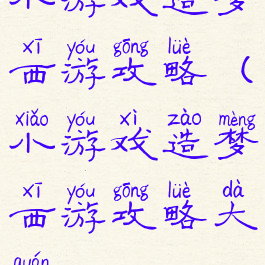 xī yóu gōng lüè
西游攻略（
xiǎo yóu xì zào mèng
小游戏造梦
xī yóu gōng lüè dà
西游攻略大
quán